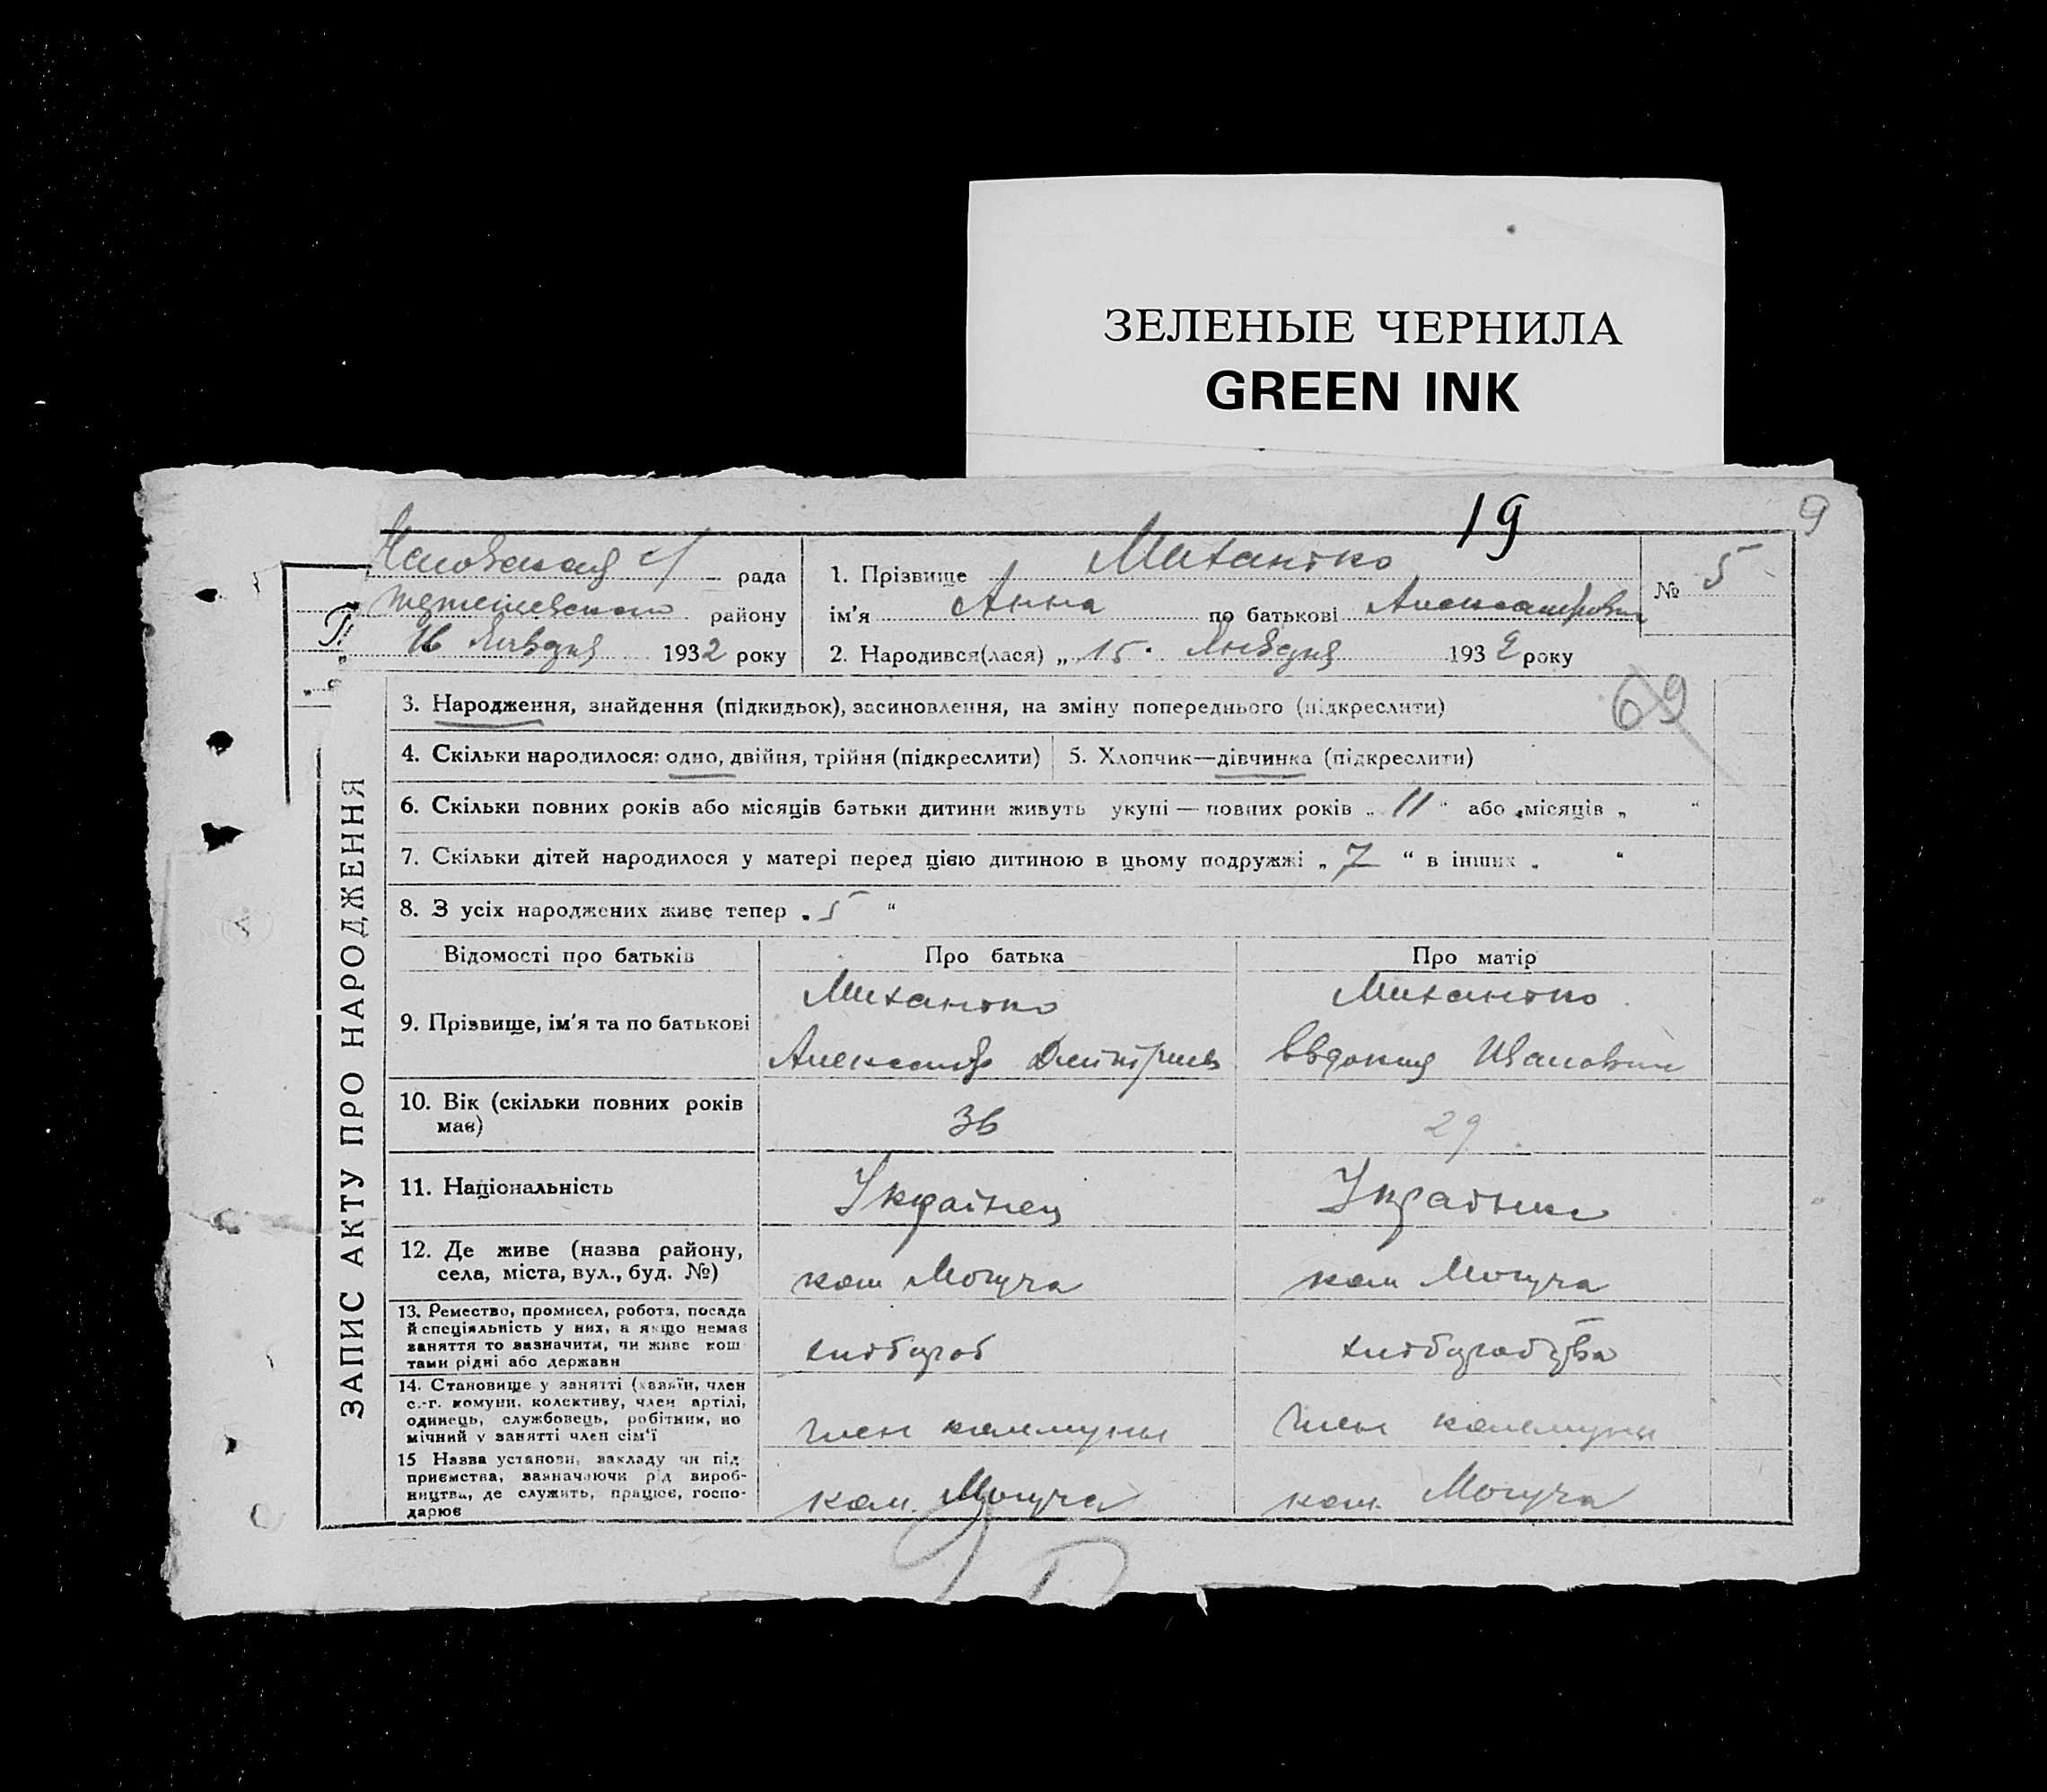 ЗЕЛЕНЫЕ ЧЕРНИЛА
GREEN INK
19
9
рада
району
16 Января 1932 року
1. Прізвище
ім'я Анна по батькові Александровна
2. Народився(лася) „ 15. Января 1932 року
№ 5
69
ЗАПИС АКТУ ПРО НАРОДЖЕННЯ
3. Народження, знайдення (підкидьок), засиновлення, на зміну попереднього (підкреслити)
4. Скільки народилося: одно, двійня, трійня (підкреслити)
5. Хлопчик—дівчинка (підкреслити)
6. Скільки повних років або місяців батьки дитини живуть укупі — повних років „ 11 “ або „місяців „ “
7. Скільки дітей народилося у матері перед цією дитиною в цьому подружжі „ 7 “ в інших „ “
8. З усіх народжених живе тепер „ 5 “
Відомості про батьків
Про батька
Про матір
9. Прізвище, ім'я та по батькові
Александр Дмитриев
Евдокия Ивановна
10. Вік (скільки повних років
має)
36
29
11. Національність
Українец
Українка
12. Де живе (назва району,
села, міста, вул., буд. №)
ком Могуча
ком Могуча
13. Ремество, промисел, робота, посада
й спеціяльність у них, а якщо немає
заняття то зазначити, чи живе кош
тами рідні або держави
хлібороб
14. Становище у занятті (хазяїн, член
с.-г. комуни, колективу, член артілі,
одинець, службовець, робітник, по
мічний у занятті член сім'ї
член коммуны
член коммуны
15 Назва установи, закладу чи під
приємства, зазначаючи рід вироб-
ництва, де служить, працює, госпо-
дарює
ком. Могуча
ком. Могуча